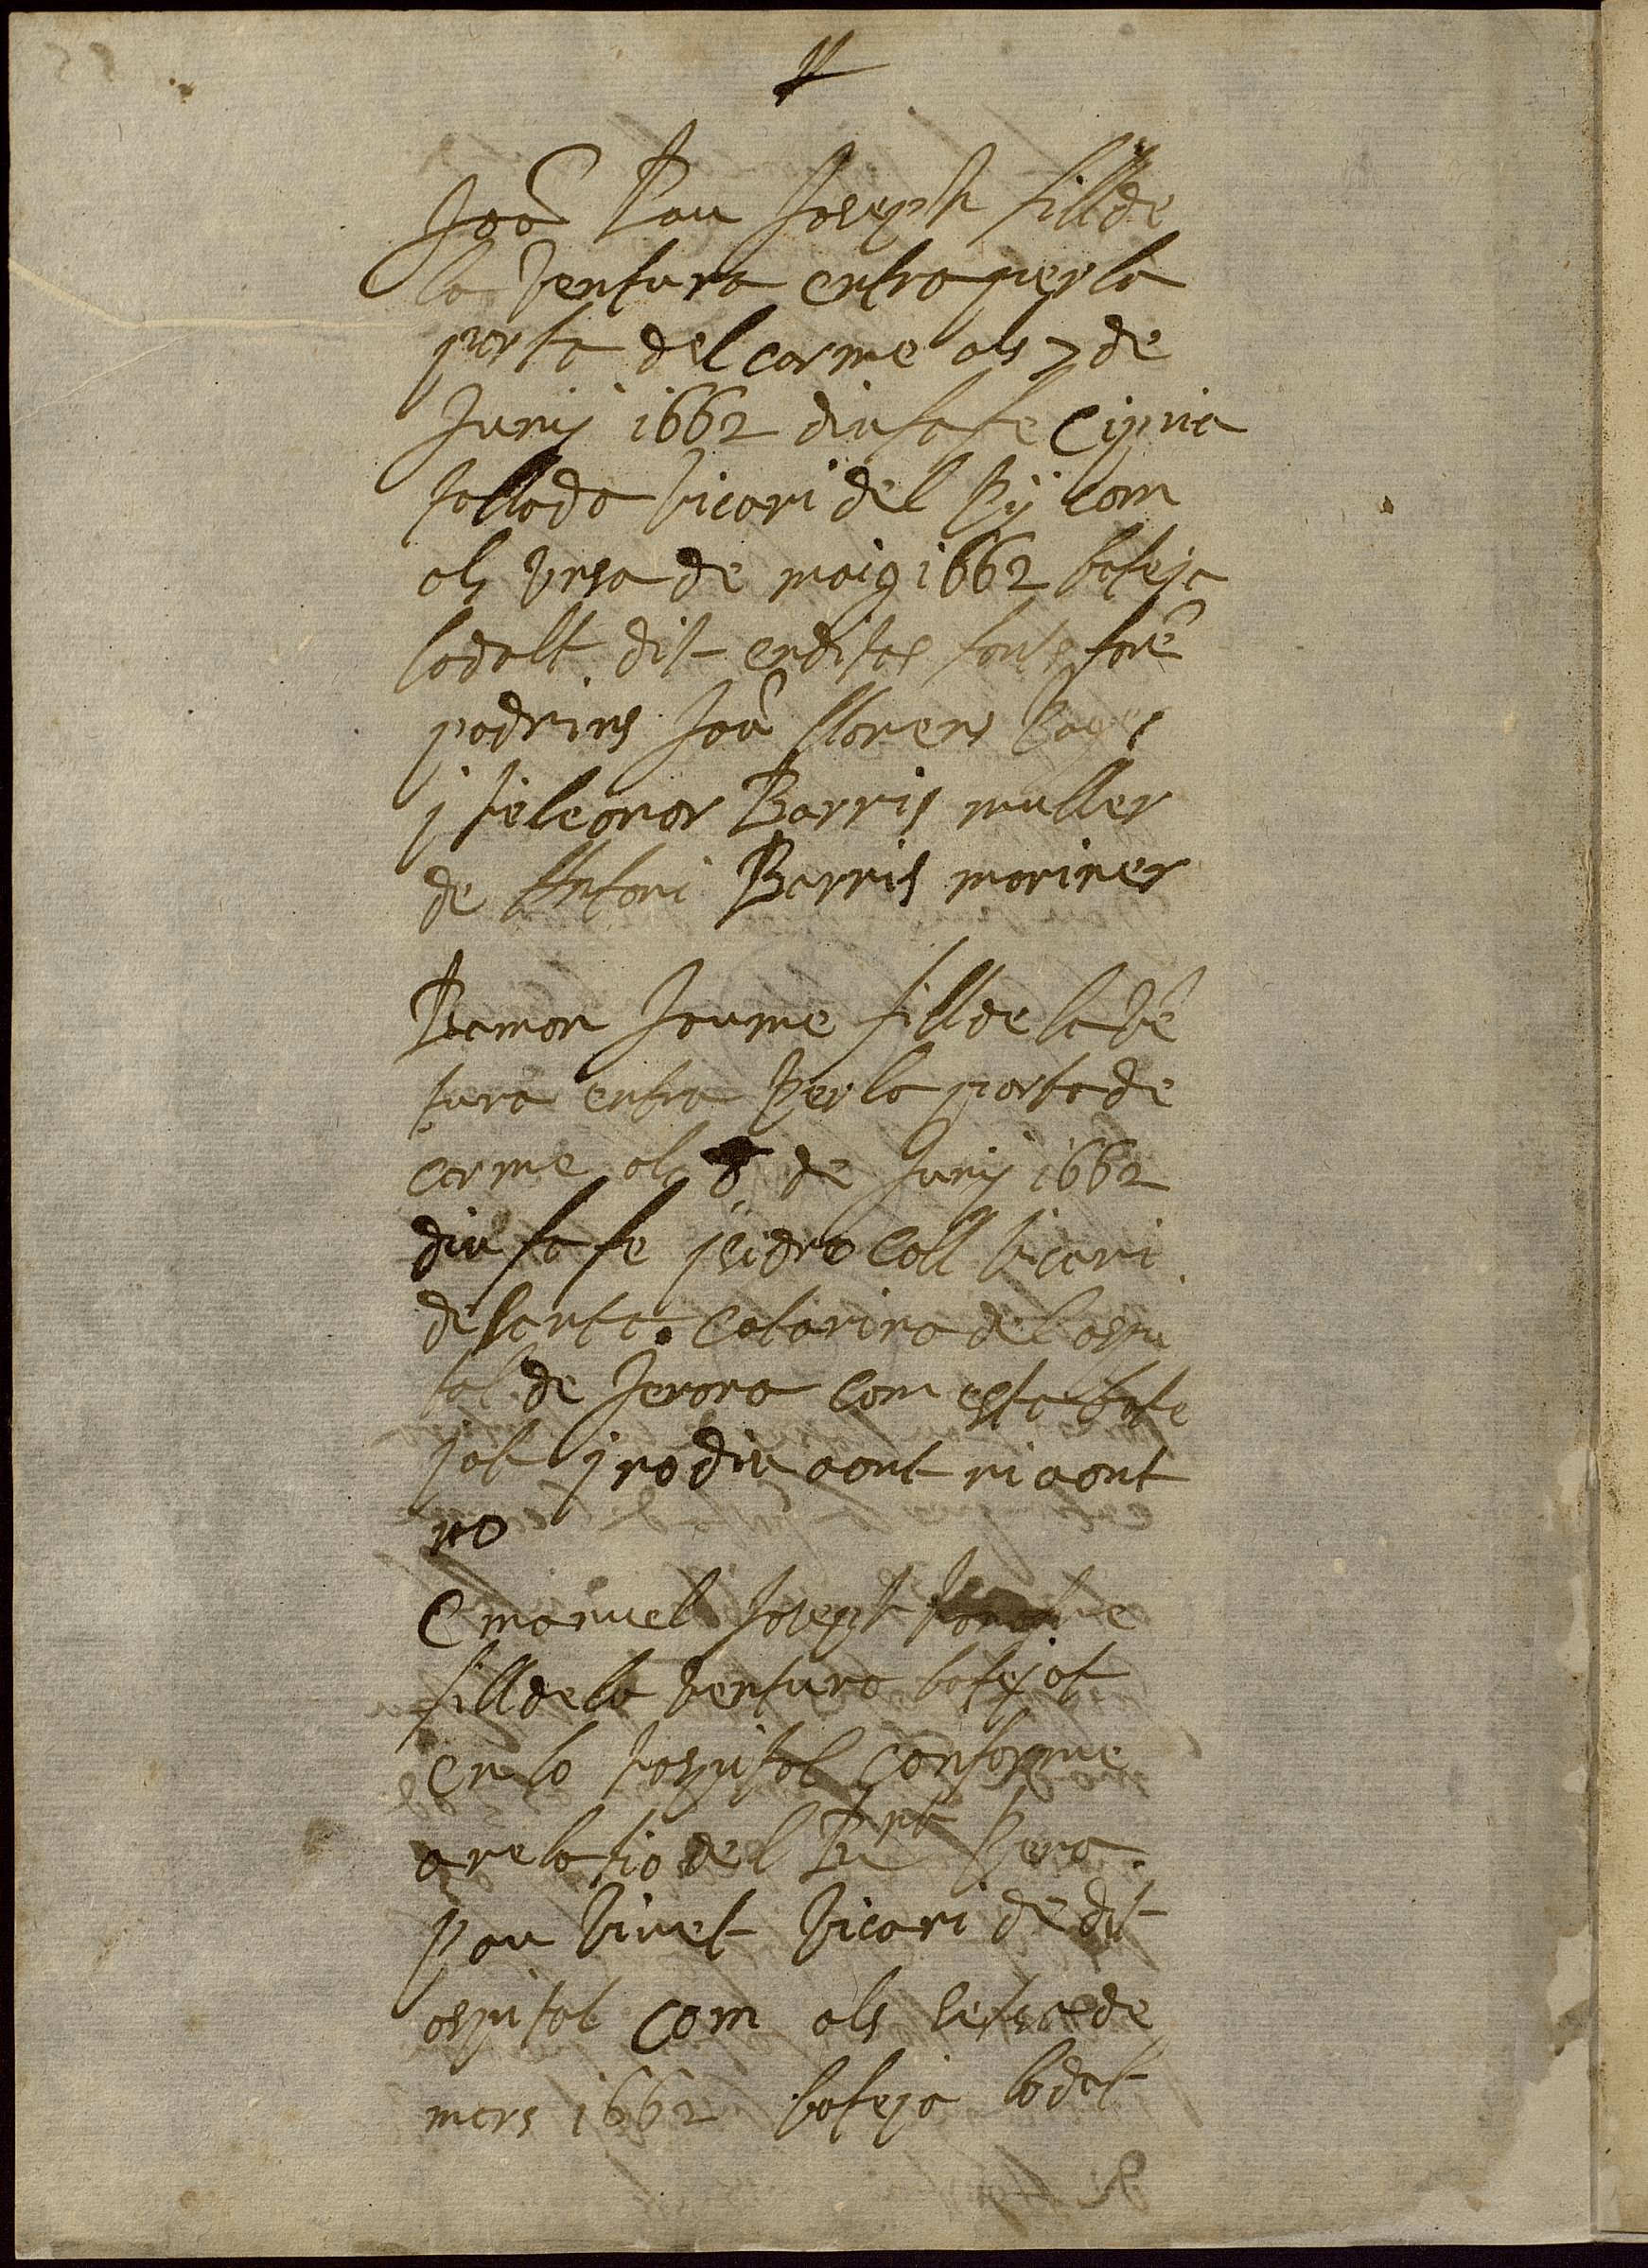 Joã Pau Joseph fill de
la Ventura entra per la
porta del carme als 7 de
Juny 1662 diu sa fe Cipria
Vicari del Py com
als Vnsa de maig 1662 bateja
lo dalt dit en dites fonts forẽ
padrins Joã llorens pages
y Heleonor Barris muller
de Antoni Barris mariner
Ramon Jaume fill de la Vẽ
tura entra per la porta de
carme als 8 de Juny 1662
diu sa fe isidro Coll Vicari
de santa Catarina del ospi
tal de Jerona com esta bate
jat y no diu aont ni aont
no
Emanuel Joseph
fill de la Ventura batejat
en lo hospital conforme
a relatio del Rnt Pera
Pau Viuet Vicari de dit
ospital com als setse de
mars 1662 bateja lo dit